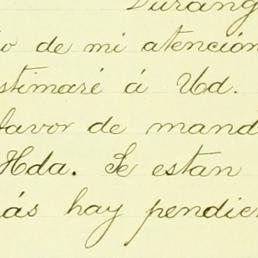 Durang
o de mi atención
stimaré á Ud.
favor de mand
Hda. Se estan
ás hay pendie